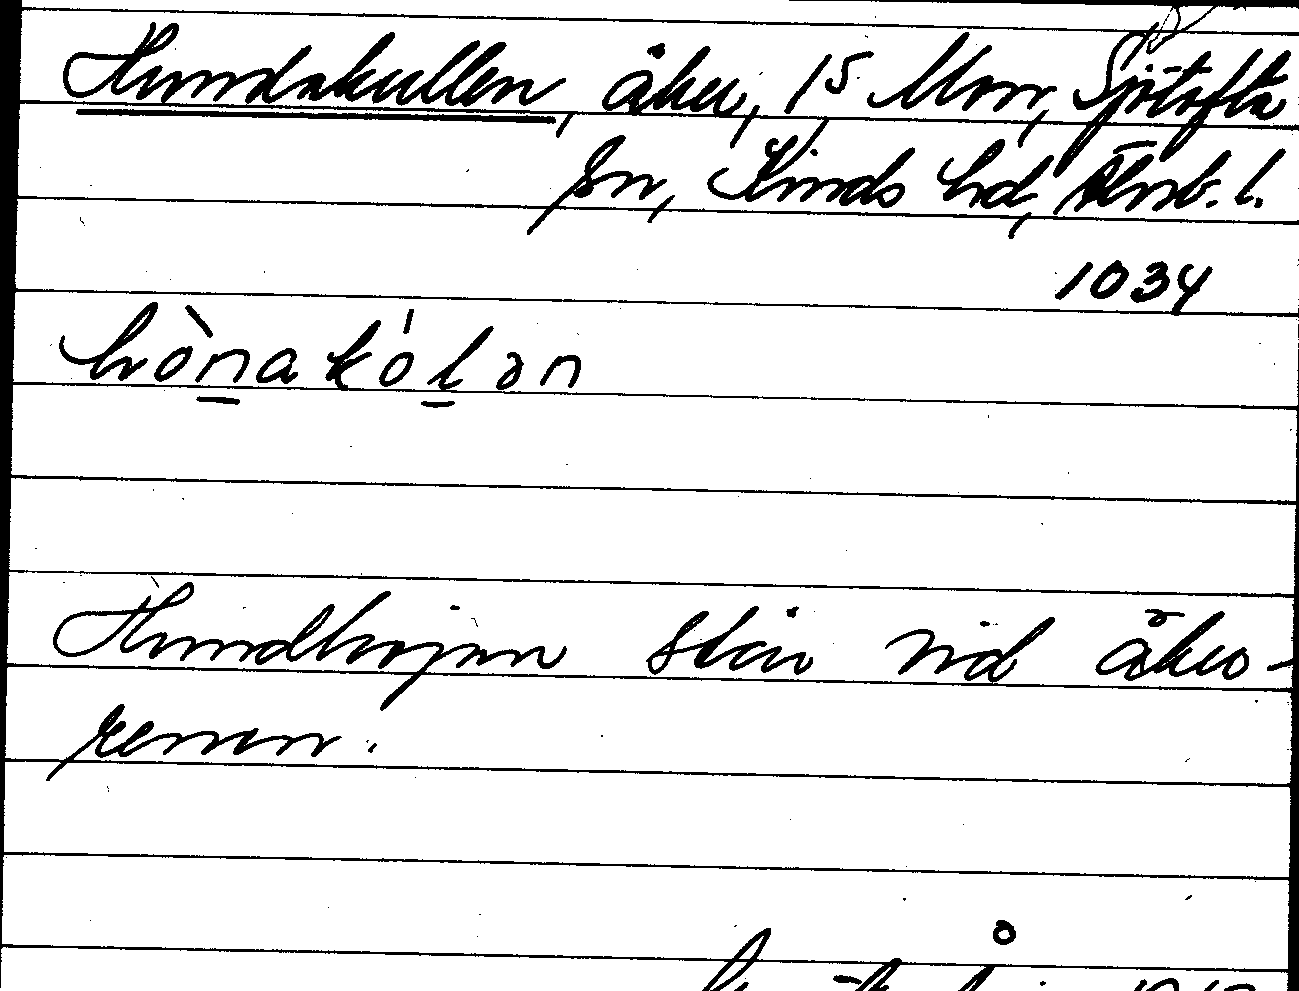 Hundakullen, åker, 15 Mon, Sjötofta
sn, Kinds hd, Älvsb. l.
1034
hònakólən
Hundkojan står vid åker-
renen.